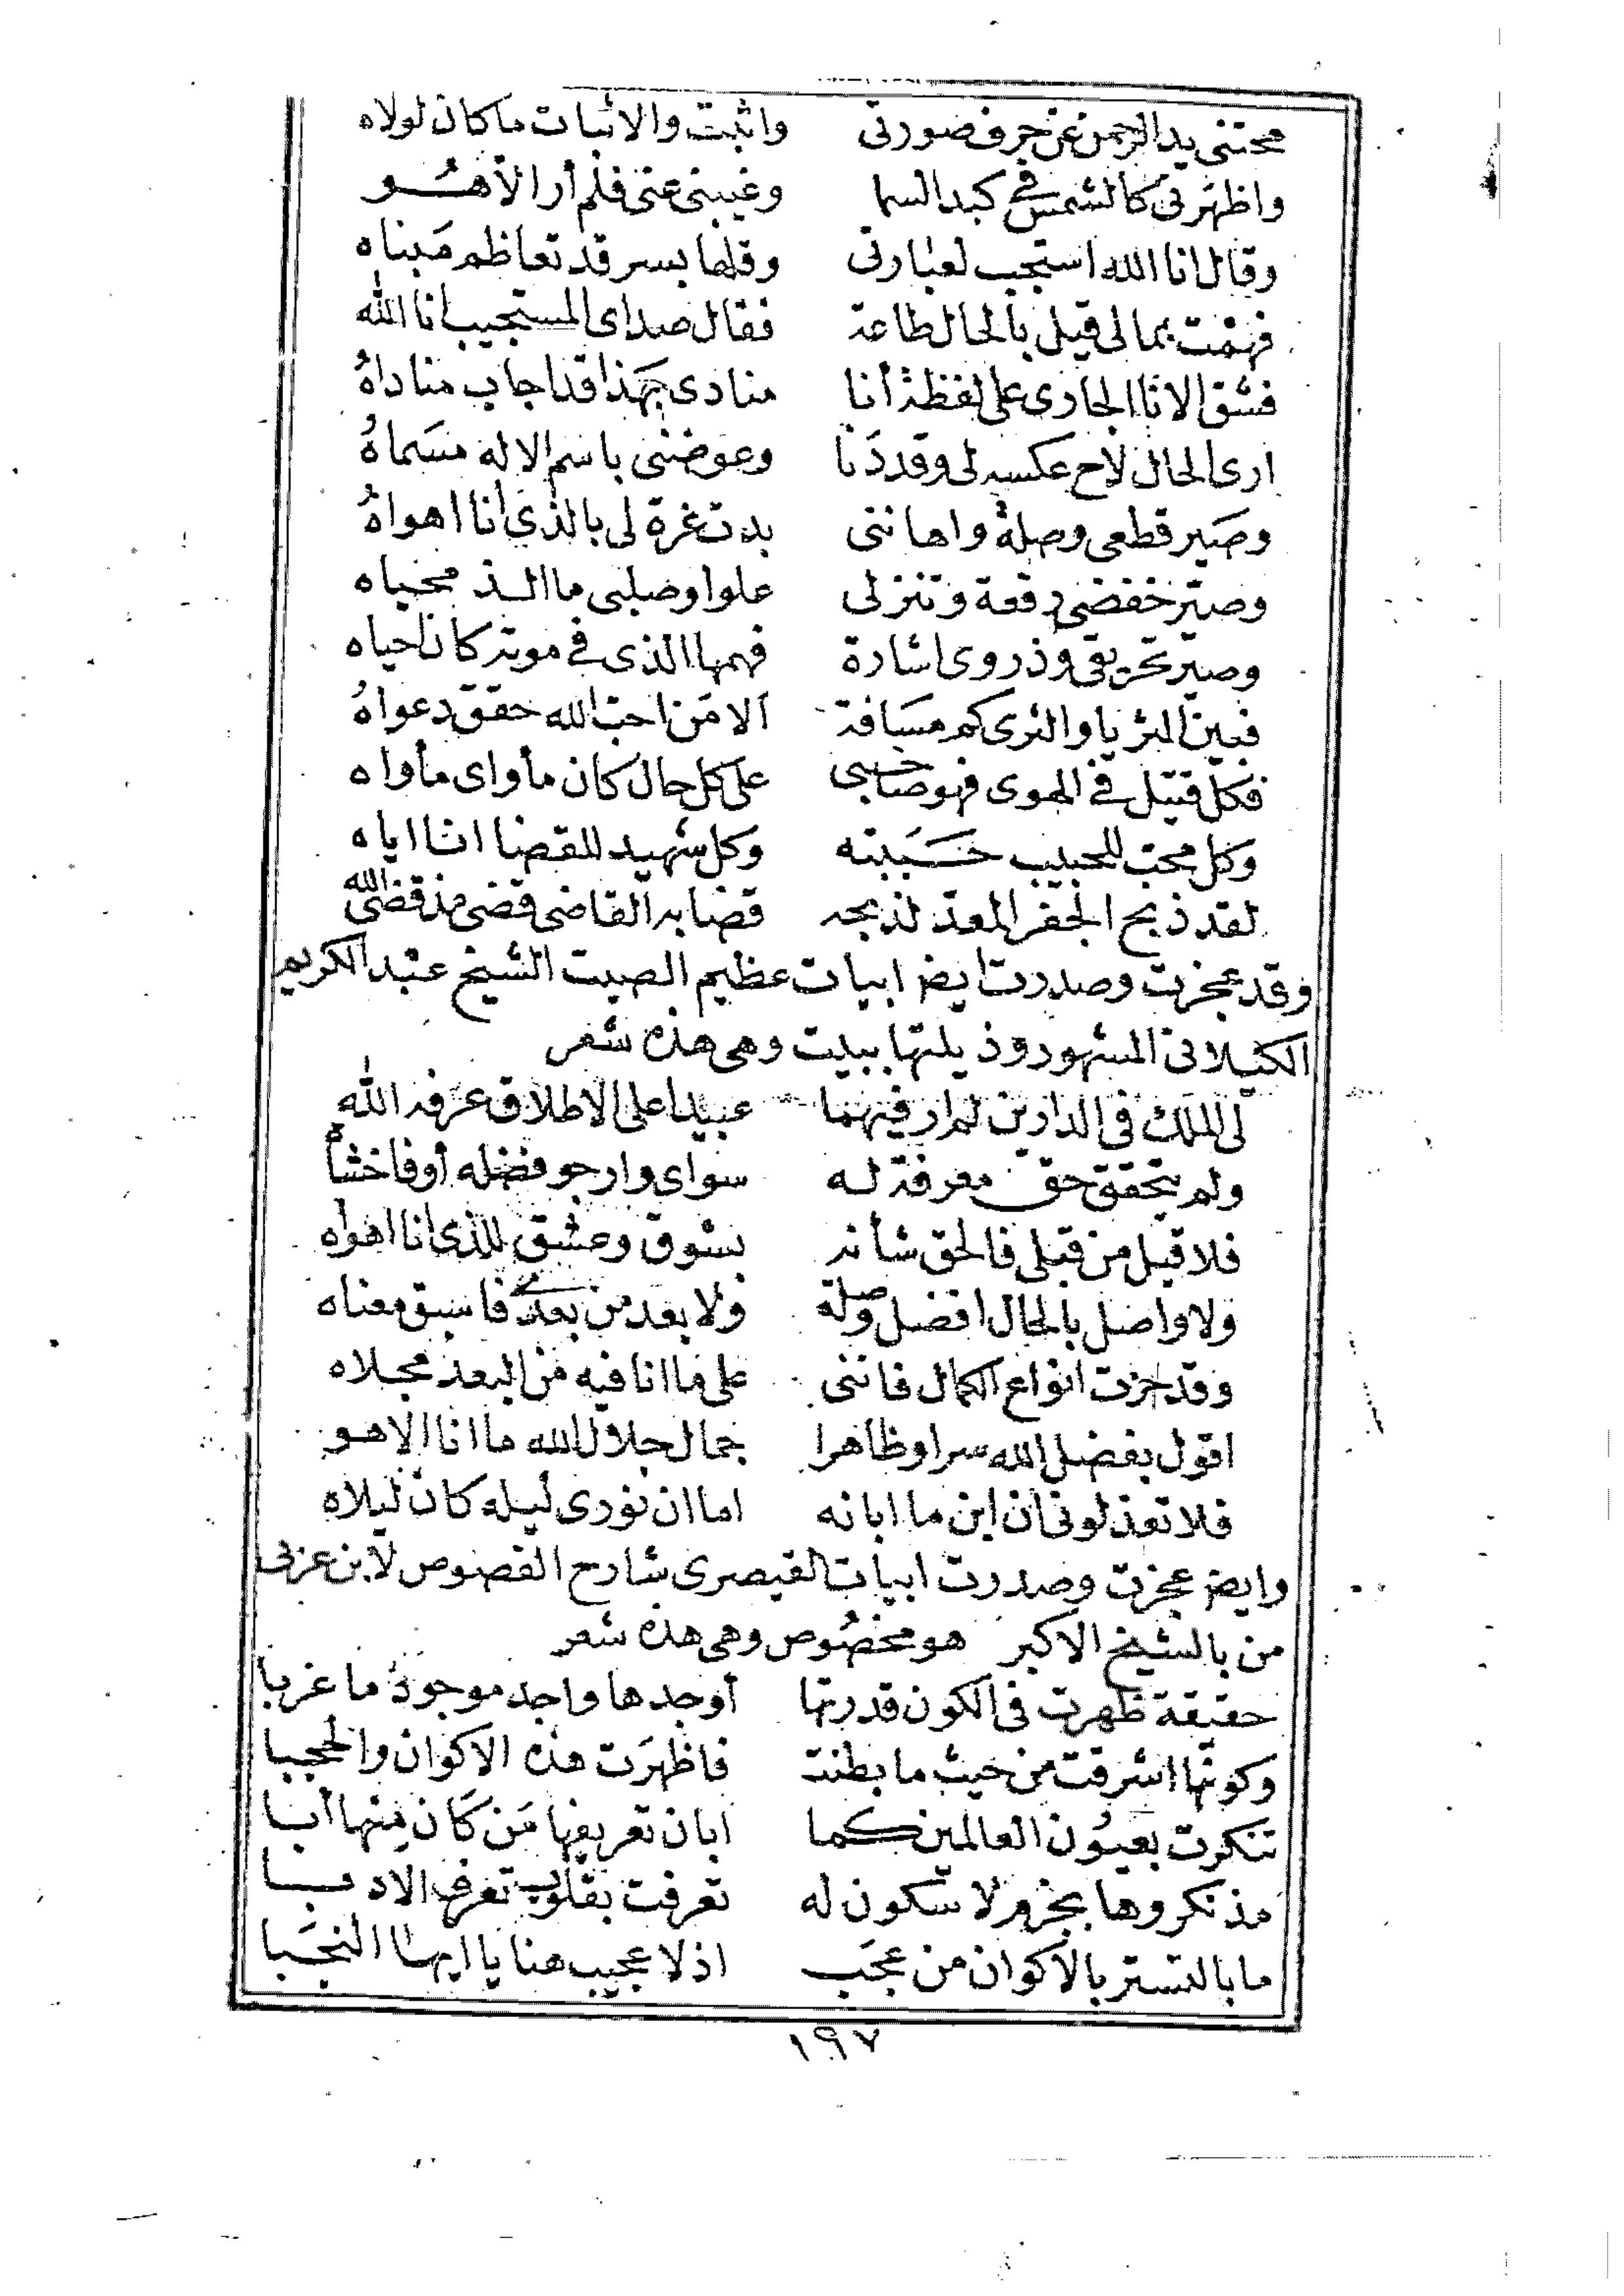 محتنى يد الرحمن عن حرف صورتى واثبت والاثبات ما كان لولاه
واظهرنى كالشمس في كبد السما وغيبنى عنى فلم أر الا هو
وقال انا الله استجب لعبارتى وقلها بسر قد تعاظم مبناه
فهمت بما لى قيل بالحال طاعة فقال صداى المستجيب انا الله
فشق الانا الجارى على لفظة أنا منادى بهذا قد اجاب مناداهُ
ارى الحال لاح عكسه لى وقد دَنا وعوضنى باسم الاله مسَماهُ
وصَير قطعى وصلة واهاننى بدت غرة لى بالذى انا اهواهُ
وصيّر خفضى رفعة وتنزلى علوا وصلبى ما الذ محياه
وصيّر تحريقى وذروى اشارة فهمها الذى في موته كان احياه
فبين الثريا والثرى كم مسَافة ألا مَن احبّ الله حقق دعواهُ
فكل قتيل في الهوى فهو صاحبى على كل حال كان مأواى مأواه
وكل محب للحبيب حسَبيته وكل شهيد للقضا انا اياه
لقد ذبح الجفر المعدّ لذبحه قضا به القاضى قضى مذ قضى الله
وقد عجزت وصدرت ايضا ابيات عظيم الصيت الشيخ عبد الكريم
الكيلانى المشهور وذيلتها ببيت وهى هذه شعر
لى الملك فى الدارين لم ار فيهما عبيدا على الاطلاق عرفه الله
ولم يتحقق حق معرفة له سواى وارجو فضله أو فاخشاهُ
فلا قبل من قبلى فالحق شأنه بشوق وعشق للذى انا اهواه
ولا واصل بالحال افضل وصلة ولا بعد من بعدى فاسبق معناه
وقد حزت انواع الكمال فاننى على ما انا فيه من البعد مجلاه
اقول بفضل الله سرا وظاهرا جمال جلال الله ما انا الا هو
فلا تعذلونى ان ابن ما ابانه اما ان نورى ليله كان ليلاه
وايضا عجزت وصدرت ابيات القيصرى شارح الفصوص لابن عربى
من بالشيخ الاكبر هو مخصُوص وهى هذه شعر
حقيقة ظهرت فى الكون قدرتها أوجدها واجد موجودُ ما غربا
وكونها اشرقت من حيث ما بطنت فاظهرَت هذه الاكوان والحجبا
تنكرت بعيُون العالمين كما ابان تعريفها مَن كَان مِنها أبا
مذ نكروها بجزم لا سكون له تعرفت بقلوب تعرف الادبا
ما بالتستر بالاكوان من عجَب اذ لا عجيب هنا يا ايها النجَبا
١٩٧